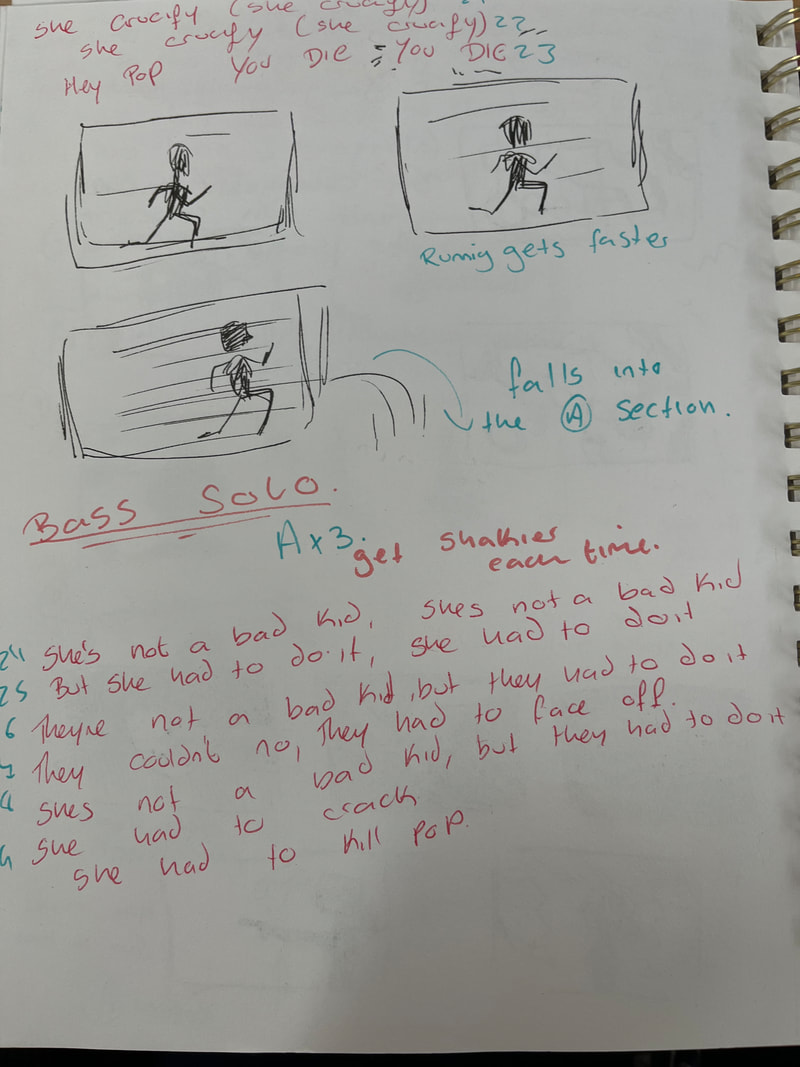 she crucify (she crucify)
she crucify (she crucify) 22
Hey Pop You DIE = You DIE 23
Runnig gets faster
falls into
the A section.
Bass Solo.
A x 3. get shakier
each time.
24 she's not a bad kid, shes not a bad kid
25 But she had to do it, she had to do it
6 They're not a bad kid, but they had to do it
They couldn't no, They had to face off.
shes not a bad kid, but they had to do it
she had to crack
she had to kill pop.